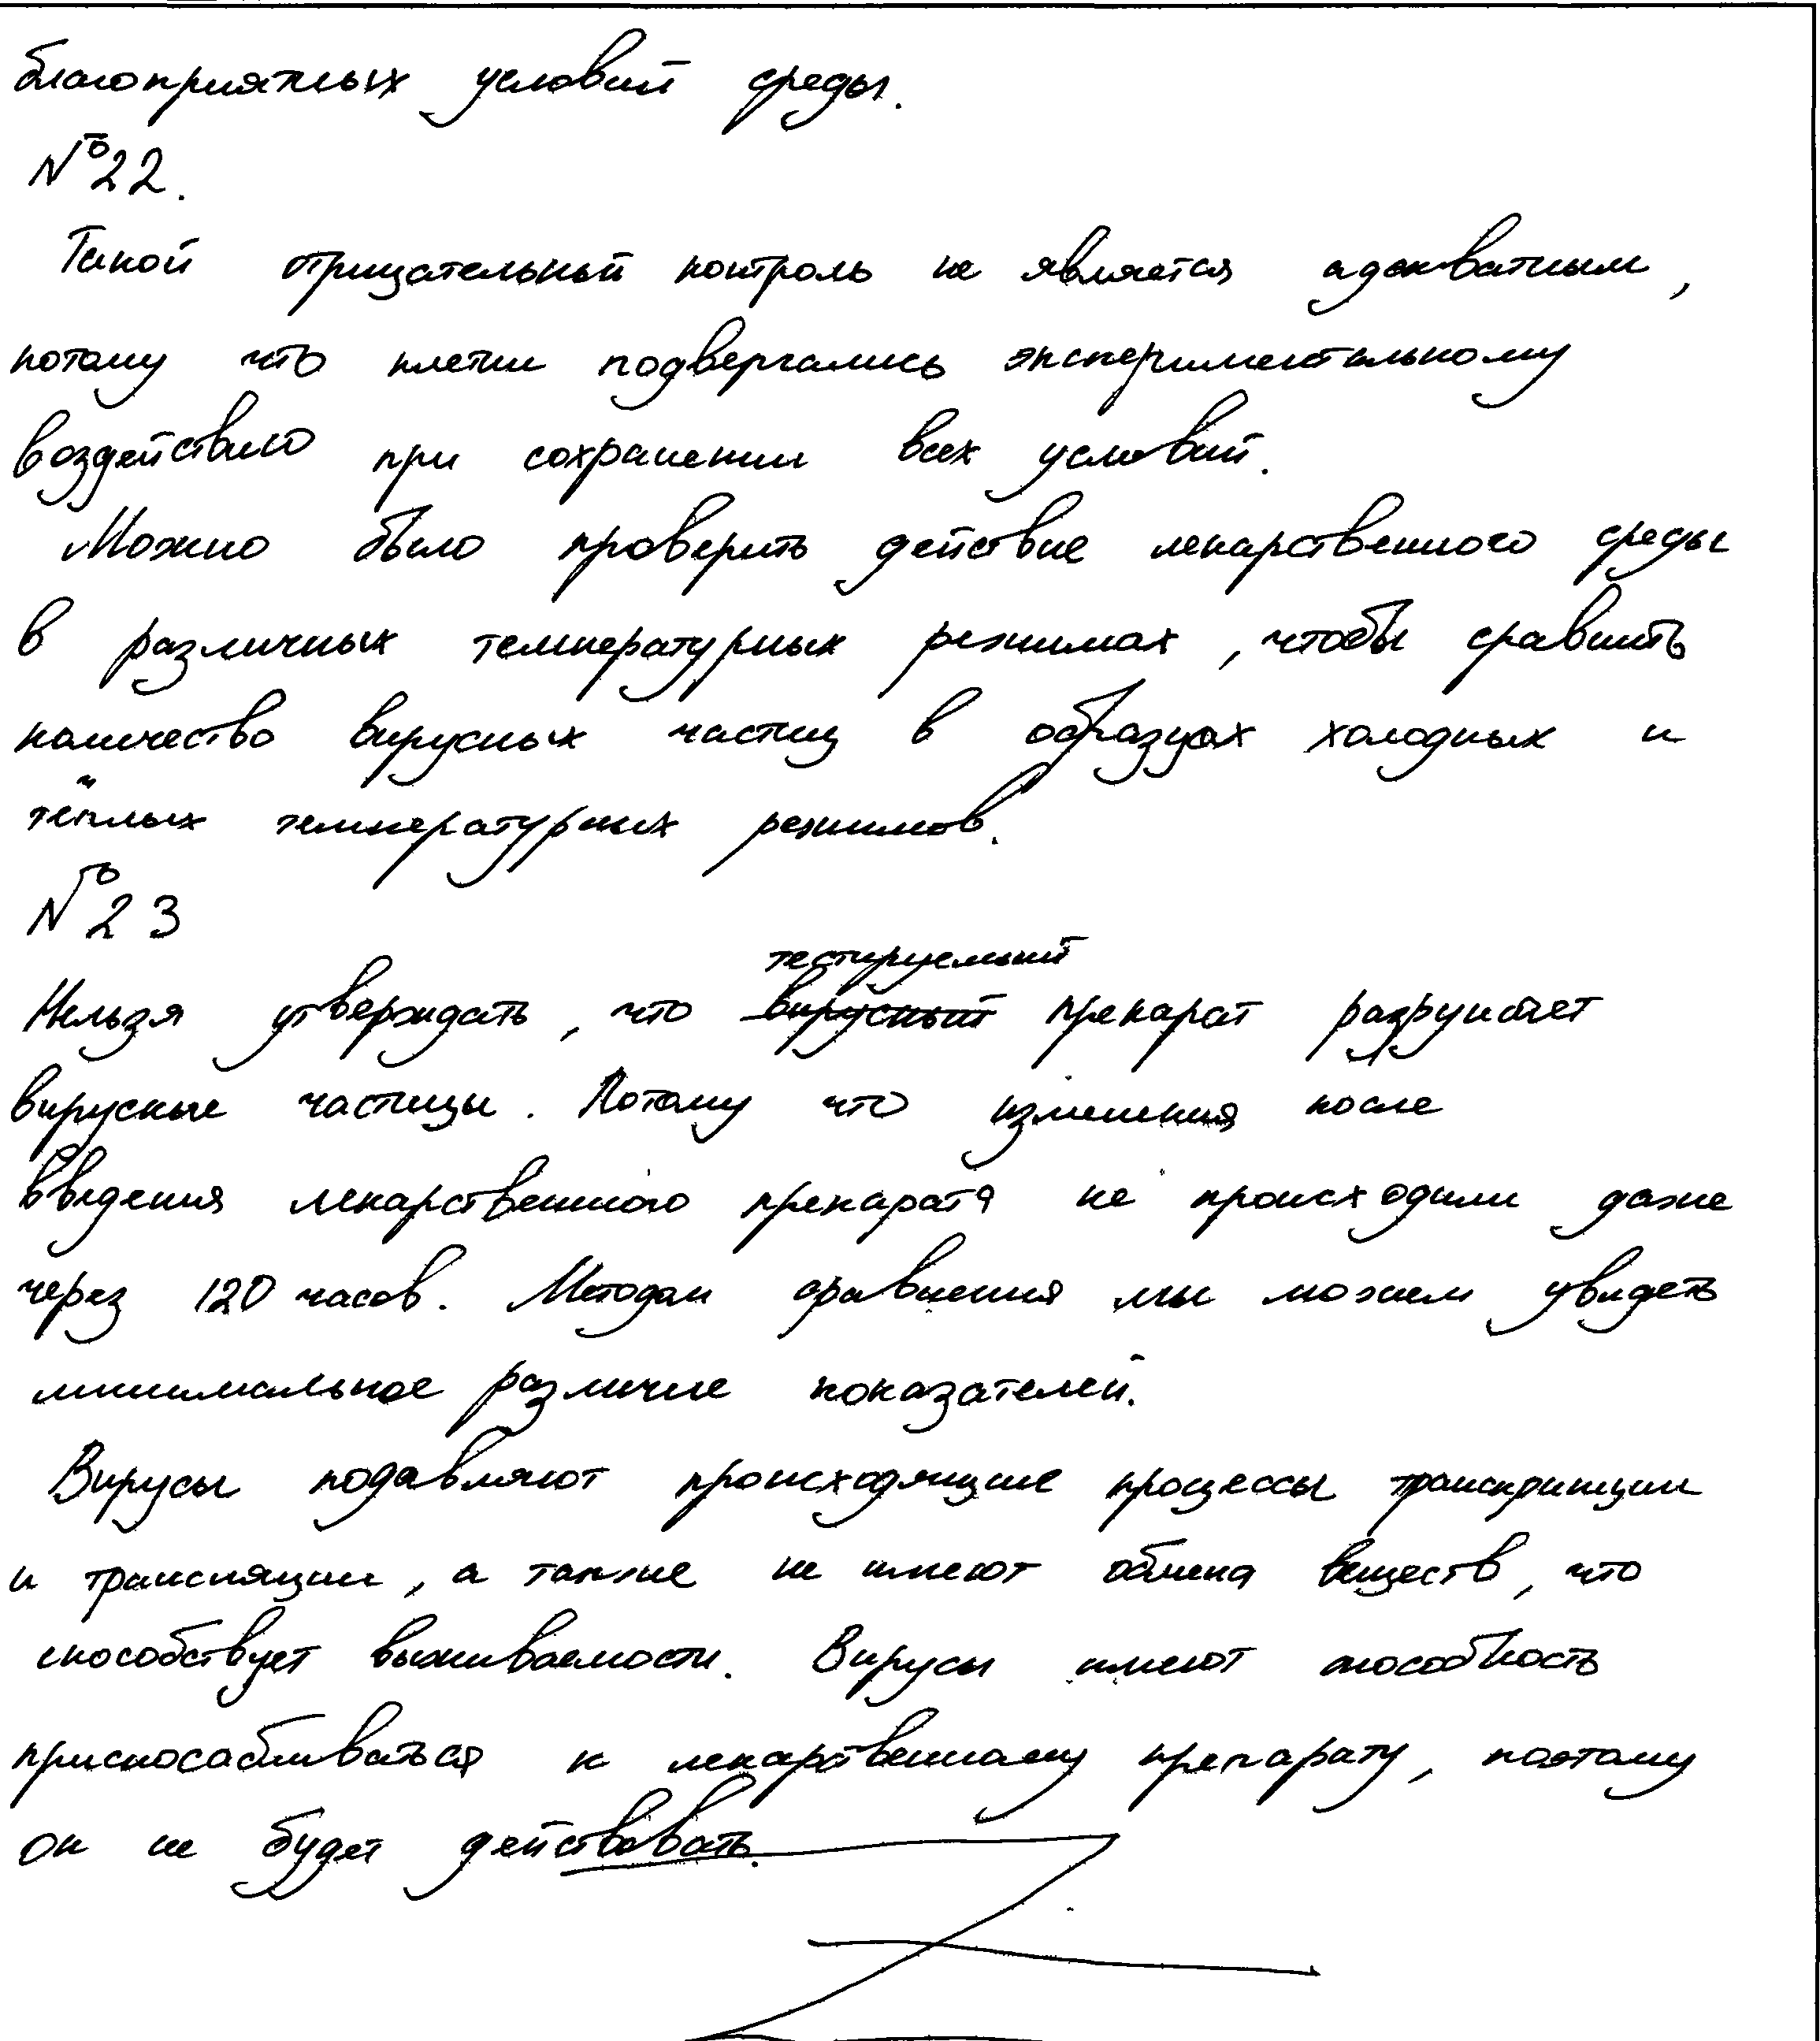 благоприятных условий среды.
№22.
Такой отрицательный контроль не является адекватным,
потому что клетки подвергались экспериментальному
воздействию при сохранении всех условий.
Можно было проверить действие лекарственного среды
в различных температурных режимах, чтобы сравнить
количество вирусных частиц в образцах холодных и
тёплых температурных режимов.
№23
тестируемый
Нельзя утверждать, что вирусный препарат разрушает
вирусные частицы. Потому что изменения после
введения лекарственного препарата не происходили даже
через 120 часов. Методом сравнения мы можем увидеть
минимальное различие показателей.
Вирусы подавляют происходящие процессы транскрипции
и трансляции, а также не имеют обмена веществ, что
способствует выживаемости. Вирусы имеют способность
приспосабливаться к лекарственному препарату, поэтому
он не будет действовать.